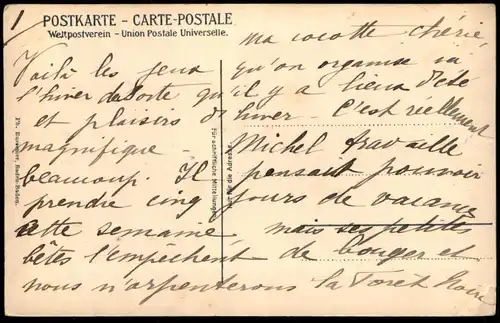 1
POSTKARTE – CARTE-POSTALE
Weltpostverein – Union Postale Universelle.
ma cocotte chérie,
Voilà les jeux qu'on organise ici
l'hiver de sorte qu'il y a lieux d'été
et plaisirs d'hiver – C'est réellement
magnifique Michel travaille
beaucoup. Il pensait pouvoir
prendre cinq jours de vacances
cette semaine mais ses petites
bêtes l'empêchent de bouger et
nous n'arpenterons la Forêt Noire
Für schriftliche Mitteilungen
Nur für die Adresse.
Baden-Baden.